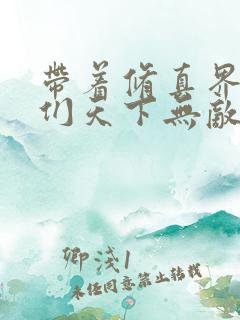 帶着修真界
们天下無敵
卿淺1
未经同意禁止转载